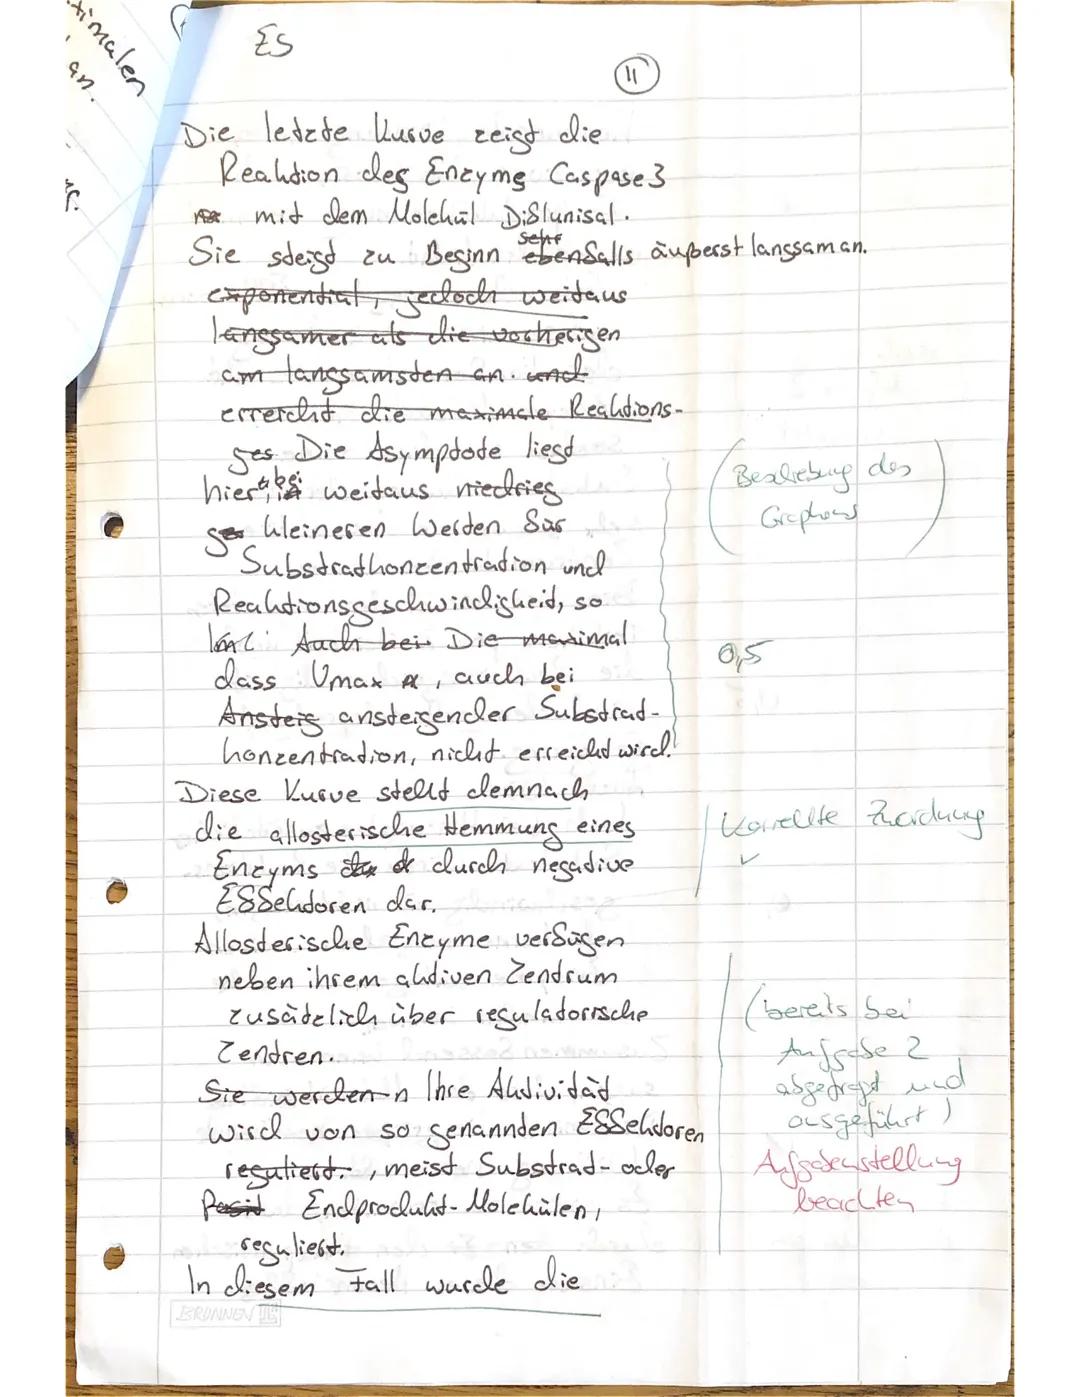 ximalen
an.
ES
11
Die letzte Kurve zeigt die
Reaktion des Enzyms Caspase 3
mit dem Molekül Diflunisal.
sehr
Sie steigt zu Beginn ebenfalls äußerst langsam an.
exponential, jedoch weitaus
langsamer als die vorherigen
am langsamsten an. und
erreicht die maximale Reaktions-
ges Die Asymptote liegt
hier, bei weitaus niedrieg
kleineren Werten für
Substratkonzentration und
Reaktionsgeschwindigkeit, so
Auch bei Die maximal
dass Vmax, auch bei
Ansteig ansteigender Substrat-
konzentration, nicht erreicht wird.
(Beschreibung des
Graphens)
0,5
Diese Kurve stellt demnach
die allosterische Hemmung eines
Enzyms durch negative
Effektoren dar.
Korrekte Zuordnung
✓
Allosterische Enzyme verfügen
neben ihrem aktiven Zentrum
zusätzlich über regulatorische
Zentren.
Sie werden Ihre Aktivität
wird von so genannten Effektoren
reguliert. , meist Substrat- oder
Posit Endprodukt-Molekülen,
reguliert.
In diesem Fall wurde die
(bereits bei
Aufgabe 2
abgefragt und
ausgeführt)
Aufgabenstellung
beachten
BRUNNEN